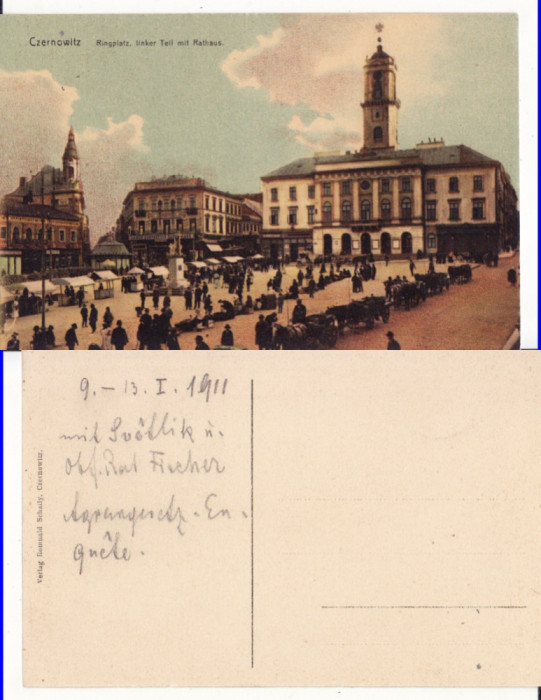 Czernowitz Ringplatz, linker Teil mit Rathaus.
9. – 13. I. 1911
mit Světlik u.
Obf. Rat Fischer
Agrargesetz-En-
quête.
Verlag Romuald Schally, Czernowitz.